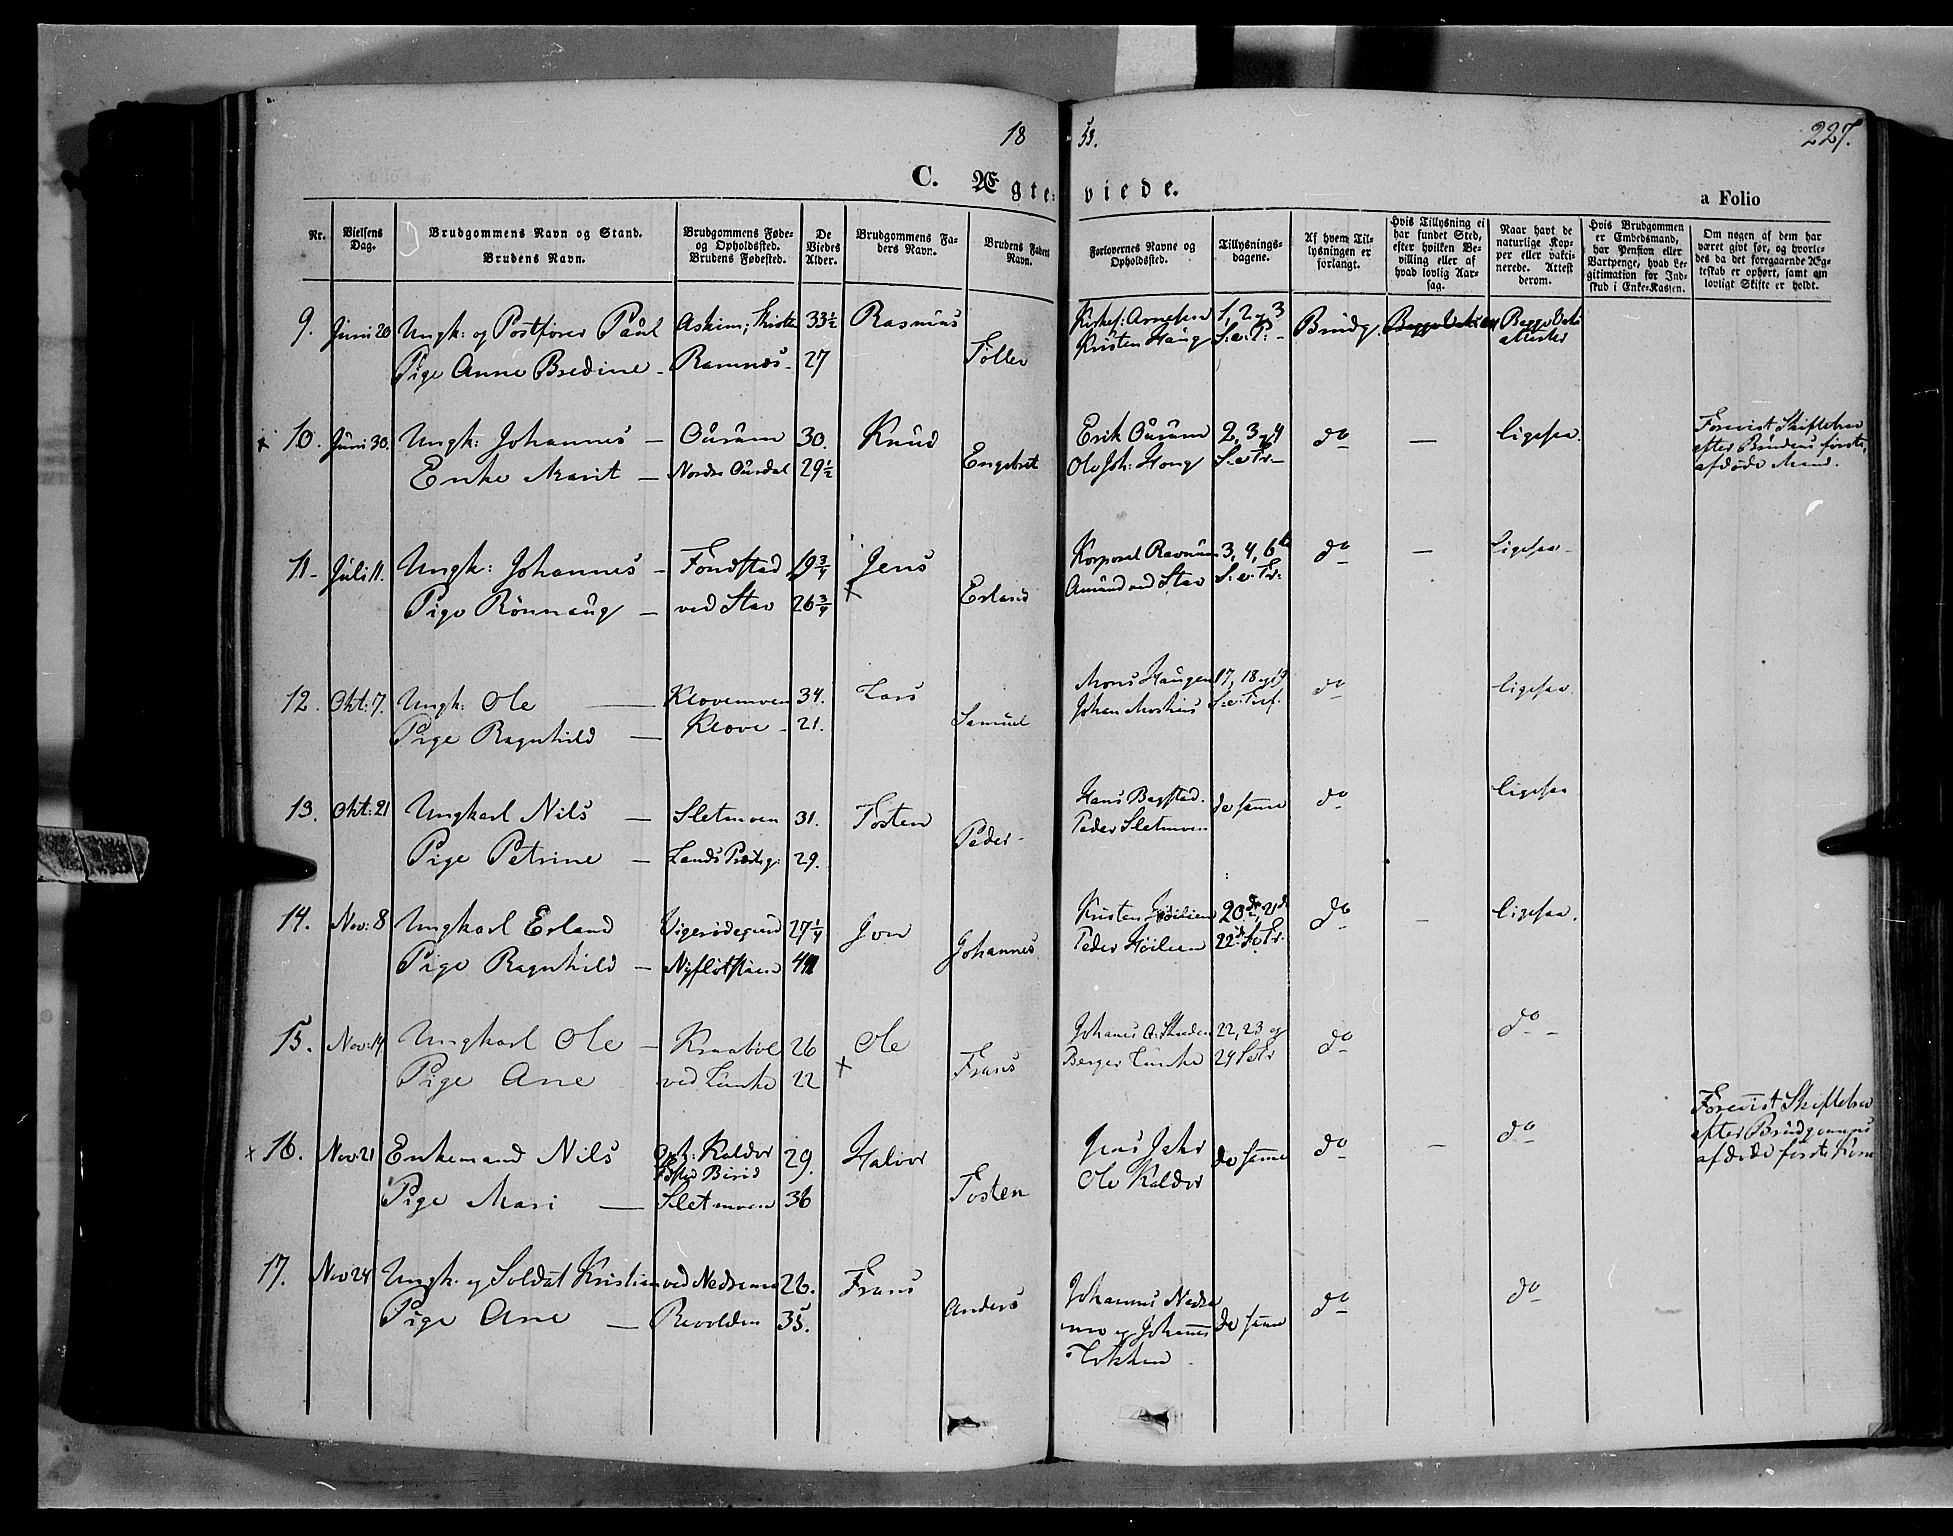 18 53.
227.
C. Ægteviede.
a Folio
Nr.
Vielsens Dag.
Brudgommens Navn og Stand.
Brudens Navn.
Brudgommens Føde- og Opholdssted.
Brudens Fødested.
De Viedes Alder.
Brudgommens Faders Navn.
Brudens Faders Navn.
Forlovernes Navne og Opholdssted.
Tillysningsdagene.
Af hvem Tillysningen er forlangt.
Hvis Tillysning ei har fundet Sted, efter hvilken Bevilling eller af hvad lovlig Aarsag.
Naar havt de naturlige Kopper eller vaccinerede. Attest derom.
Hvis Brudgommen er Embedsmand, har Pension eller Vartpenge, hvad Legitimation for Indskud i Enke-Kassen.
Om nogen af dem har været gift før, og hvorledes da det foregaaende Ægteskab er ophørt, samt om lovligt Skifte er holdt.
9. Juni 20 Ungk: og Postfører Paul Askim; 33½ Rasmus Kirkes: Arnesen 1, 2 og 3 Brudg. Begge Vak:
Pige Anne Bredine - Ramnæs - 27 Føller Kristen Haug S. e. P. - attester
x 10. Juni 30. Ungk: Johannes - Øurum 30. Knud Erik Øurum 2, 3 og 4 do - ligesaa. Forevist Skiftebrev
Enke Marit - Nordre Øurdal 29½ Engebret Ole Joh: Houg S. e. Tr - efter Brudens første,
afdøde Mand.
11 - Juli 11. Ungk: Johannes - Fondstad 19¾ Jens Korporal Rasmus 3, 4, 6te do - ligesaa -
Pige Rønnaug - ved Stav 26¾ x Erland Amund ved Stav S. e. Tr:
12. Okt: 7. Ungk: Ole - Klovemoen 34. Lars Mons Haugen 17, 18 og 19 do ligesaa.
Pige Ragnhild - Klove - 21. Samuel Johan S. e. Tref.
13. Okt: 21 Ungkarl Nils - Sletmoen 31. Tosten Hans Bagstad. de samme do ligesaa
Pige Petrine - Lands Præstegj: 29. Peder - Peder Sletmoen
14. Nov: 8 Ungkarl Erland 27¼ Jon Kristen Høilien 20de, 21de do - ligesaa.
Pige Ragnhild - 41 Johannes Peder Høilien 22de S. e Tr.
15. Nov: 14 Ungkarl Ole - Kraabøl 26 Ole Johanes 22, 23 og do do -
Pige Ane ved Lunke 22 x Frans Berger Lunke 24 S e Tr
x 16. Nov: 21 Enkemand Nils Oph: Kaldor 29. Halvor Jens de samme do - do Forevist Skiftebrev
Fødested Birid efter Brudgommens
Pige Mari - Sletmoen 36 Tosten Ole Kaldor afdøde første Kone
17. Nov 24 Ungk. og Soldat Kristian ved Nedremo 26. Frans Johannes Nedre do do
Pige Ane - Revolden 35. Anders mo og Johannes de samme